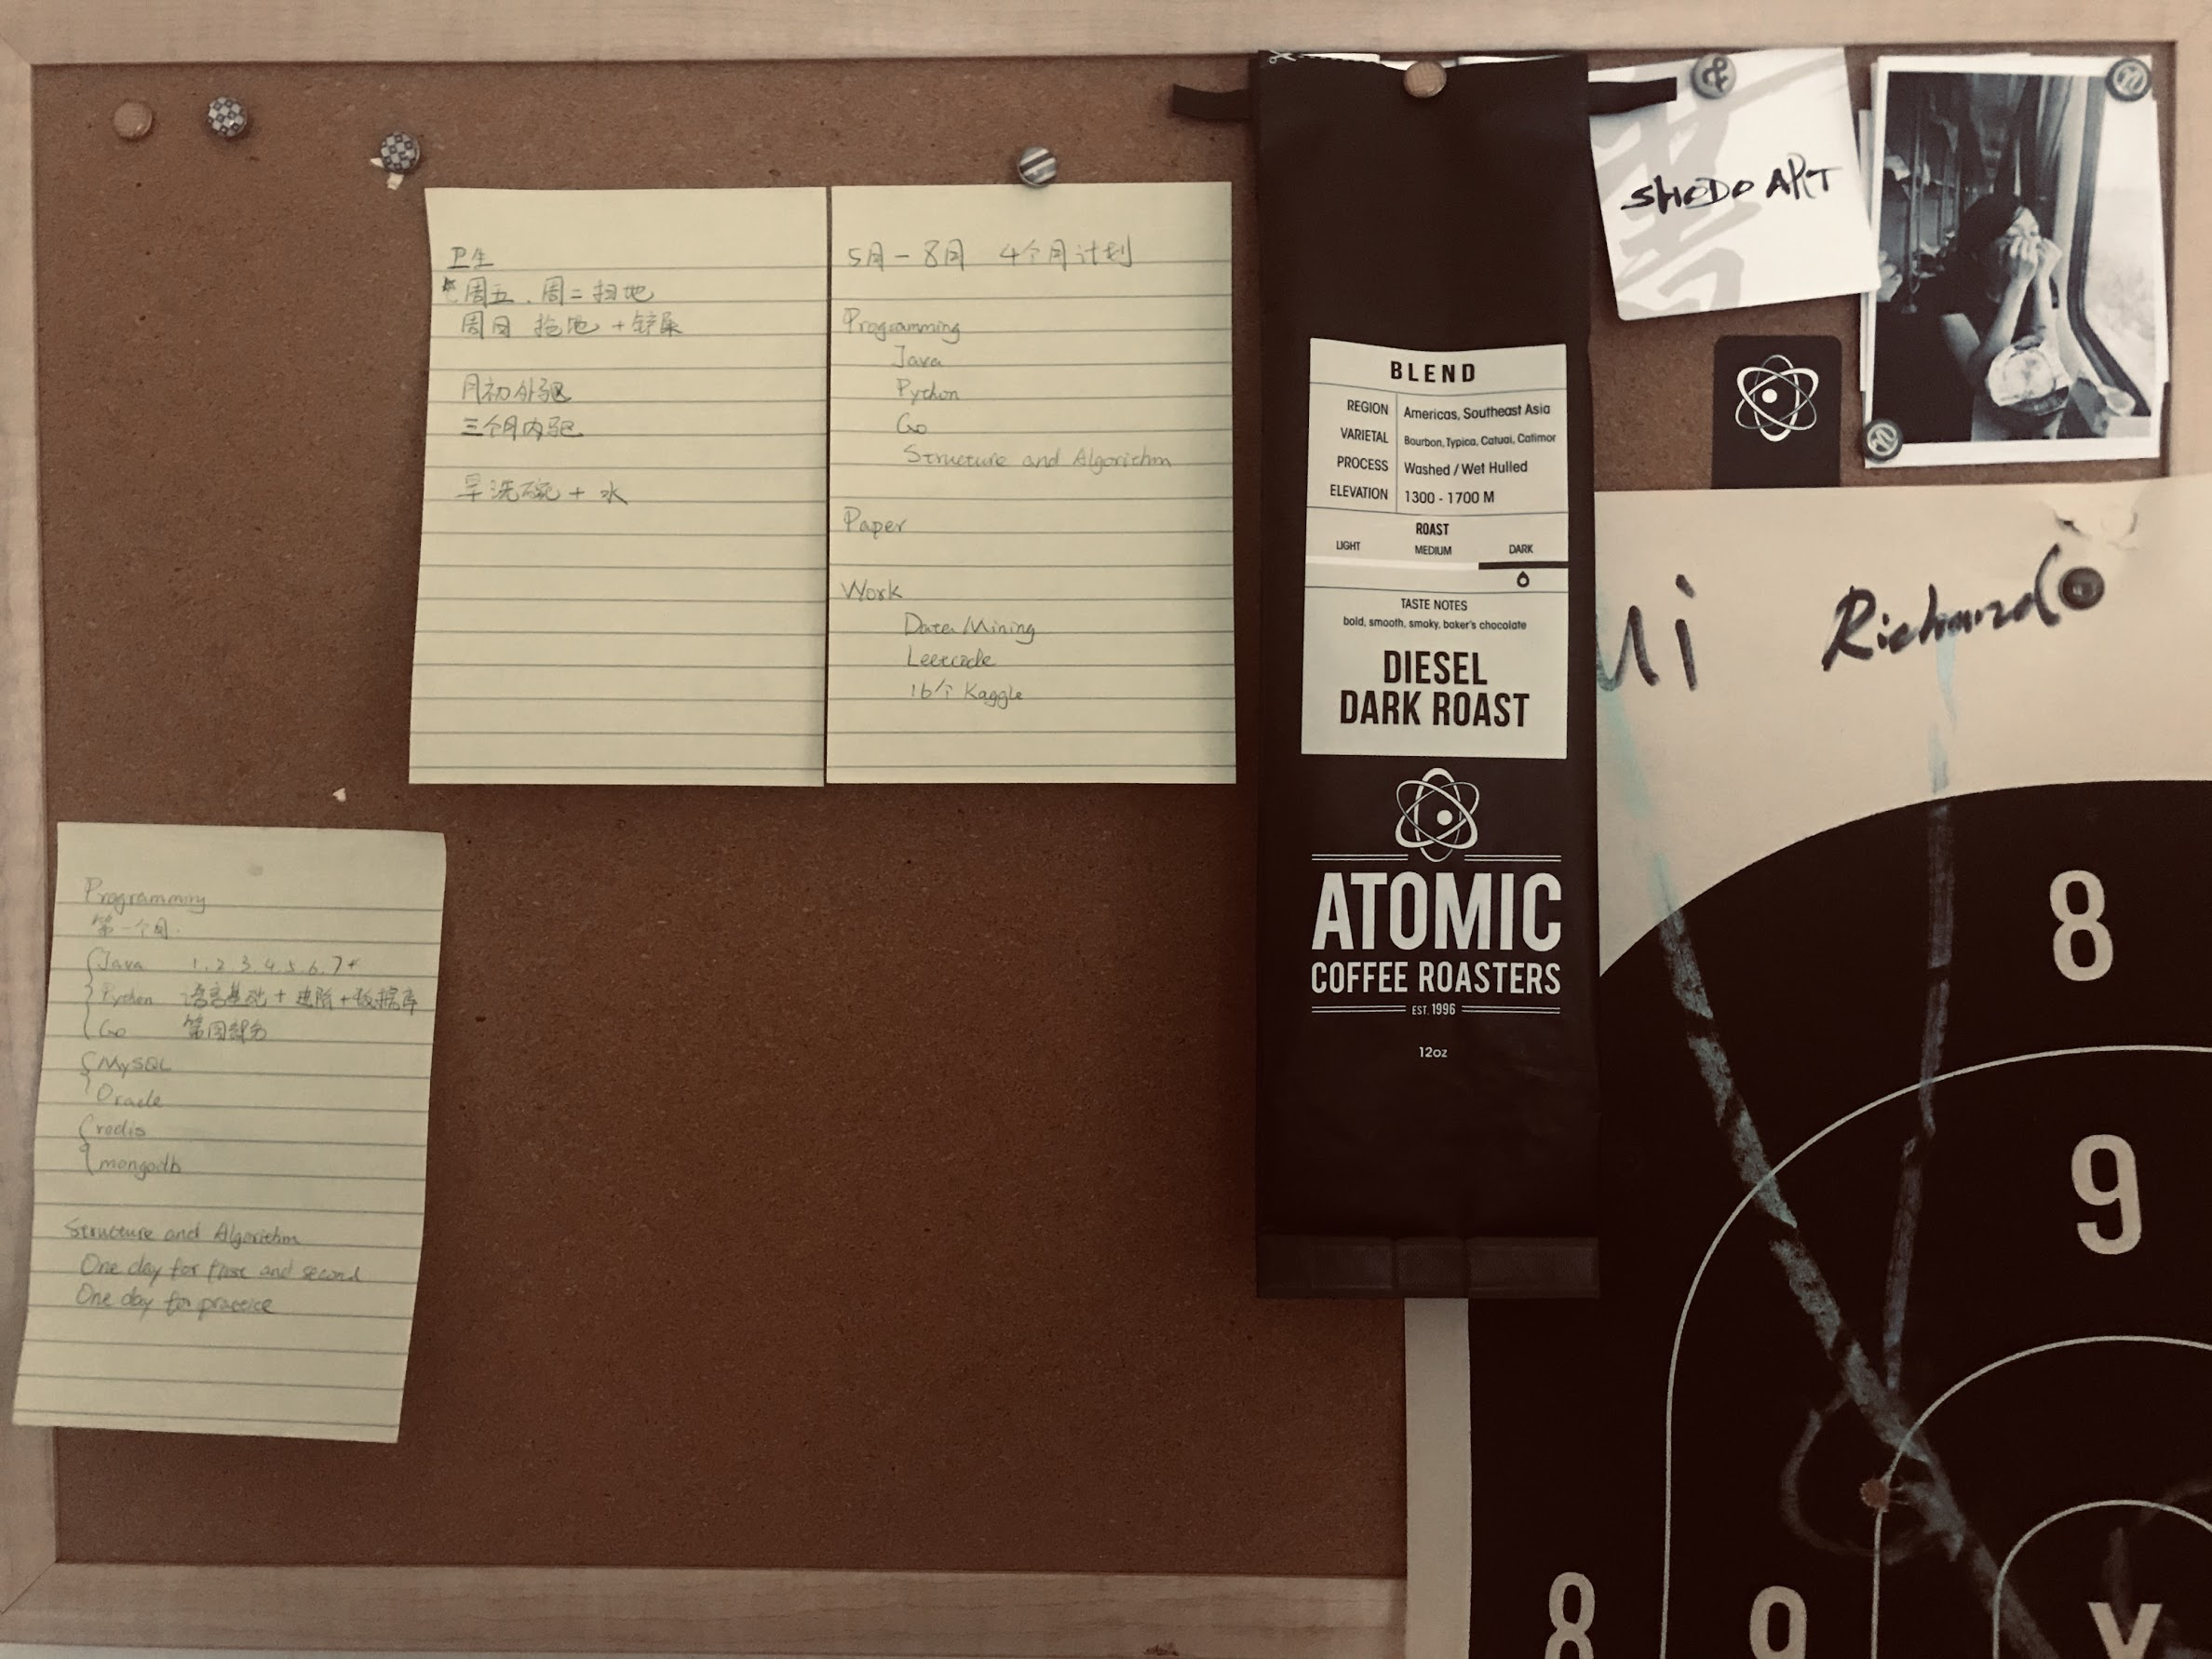 卫生
周五、周二扫地
周日 拖地 + 铲屎
月初外驱
三个月内驱
早洗碗 + 水
5月 - 8月 4个月计划
Programming
Java
Python
Go
Structure and Algorithm
Paper
Work
Data Mining
Leetcode
16个 Kaggle
Programming
第一个月
Java 1.2.3.4.5.6.7
Python 语言基础 + 进阶 + 数据库
Go 第四部分
MySQL
Oracle
redis
mongodb
Structure and Algorithm
One day for first and second
One day for practice
BLEND
REGION Americas, Southeast Asia
VARIETAL Bourbon, Typica, Catuai, Catimor
PROCESS Washed / Wet Hulled
ELEVATION 1300 - 1700 M
ROAST
LIGHT MEDIUM DARK
TASTE NOTES
bold, smooth, smoky, baker's chocolate
DIESEL
DARK ROAST
ATOMIC
COFFEE ROASTERS
EST. 1996
12oz
書
SHODO ART
Richard
8
9
8 9